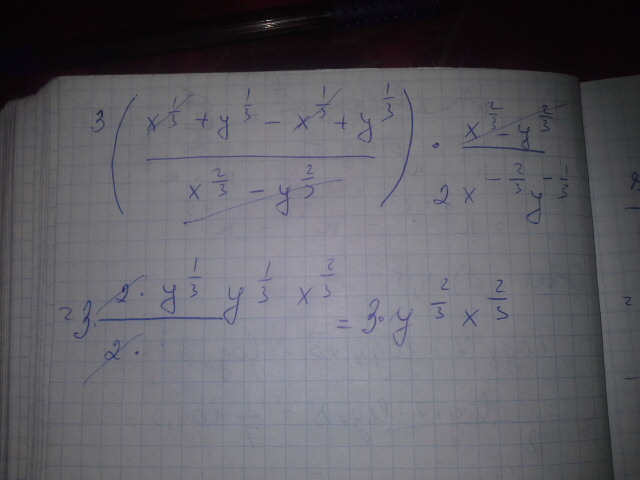 3 ( (x^{1/3} + y^{1/3} - x^{1/3} + y^{1/3}) / (x^{2/3} - y^{2/3}) ) · (x^{2/3} - y^{2/3}) / (2 x^{-2/3} y^{-1/3})
= 3 · (2 · y^{1/3}) / (2 ·) y^{1/3} x^{2/3} = 3 · y^{2/3} x^{2/3}